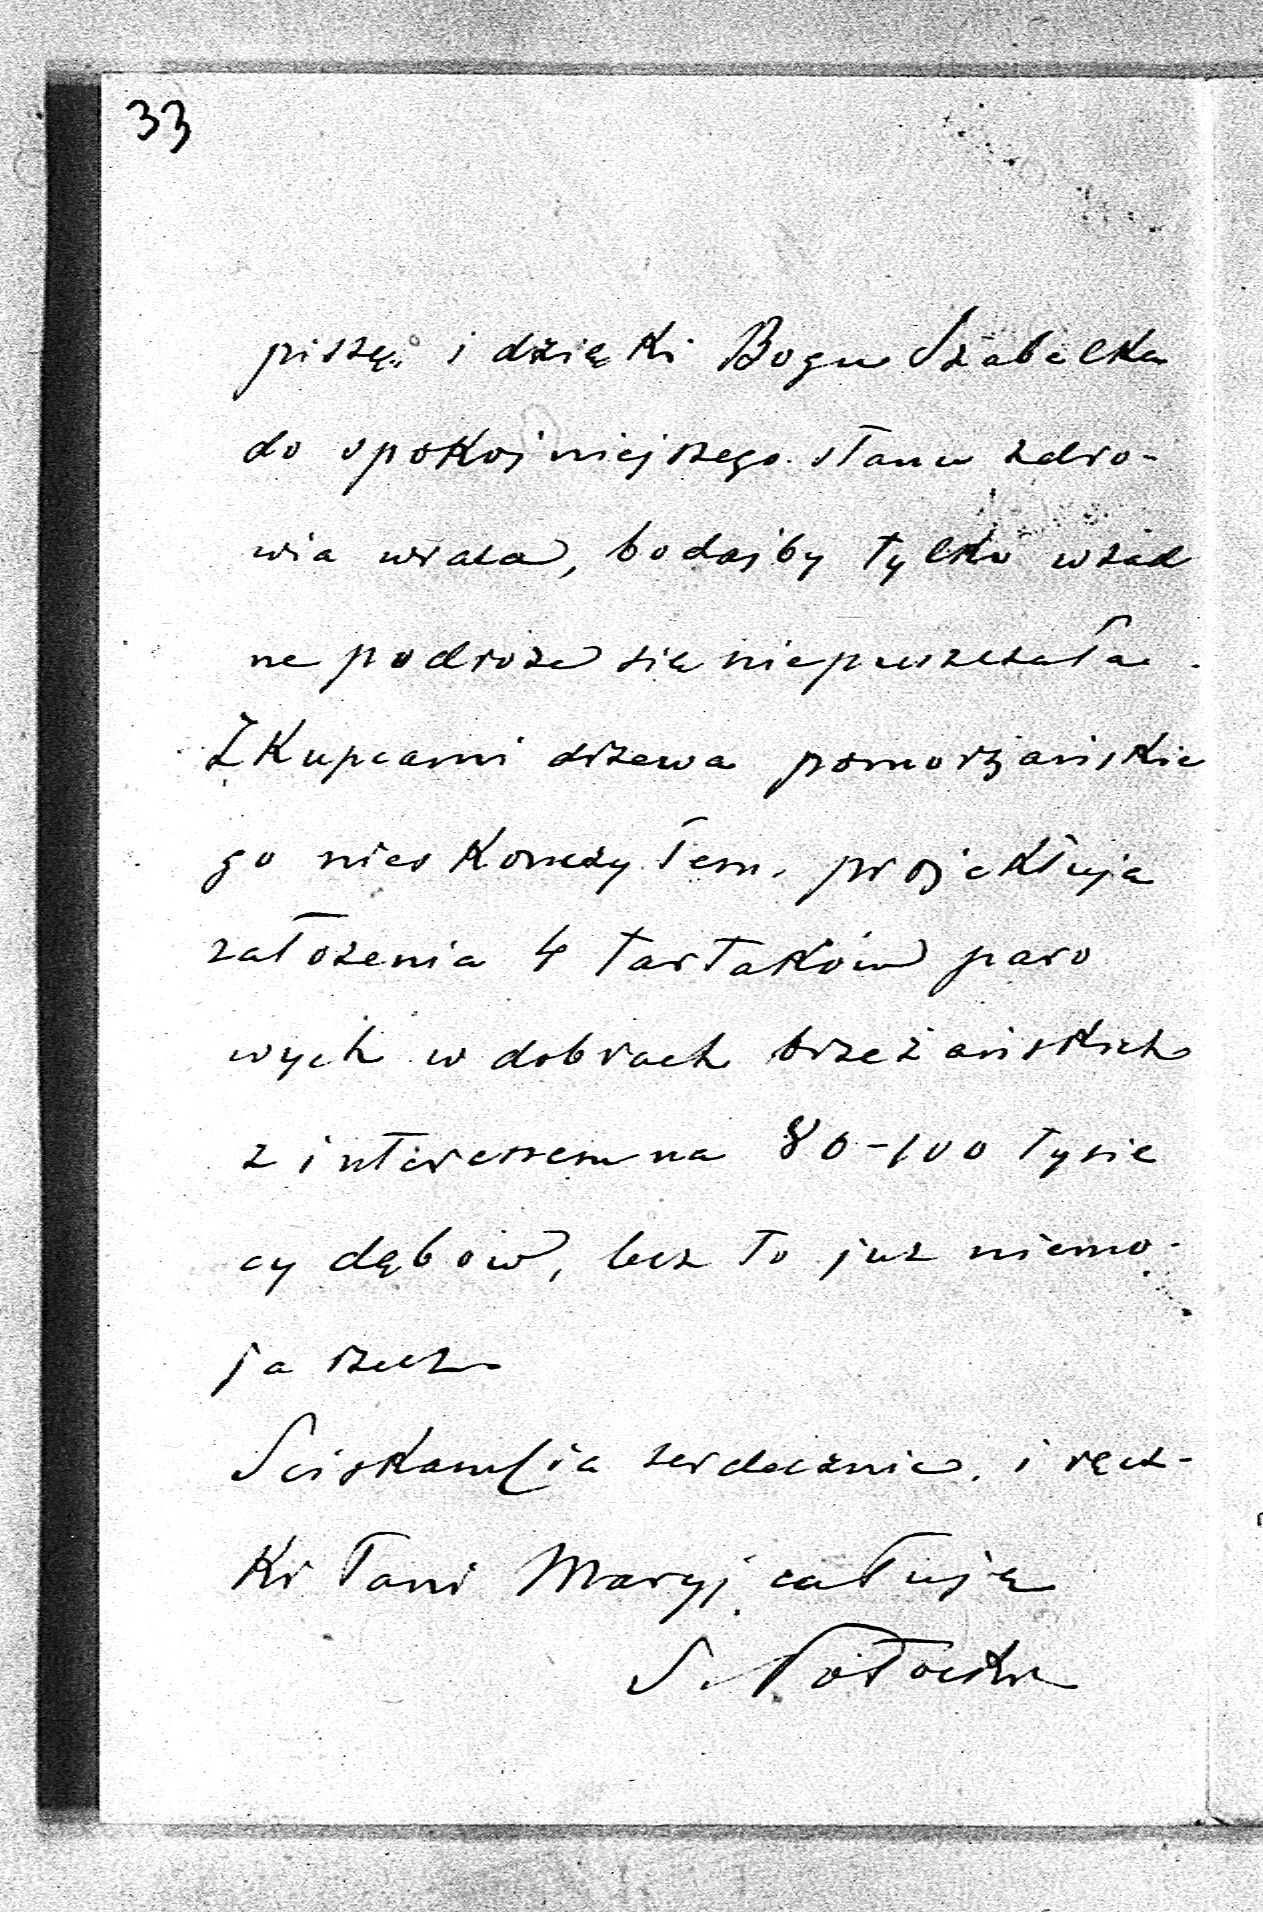 33
piszę. i dzięki Bogu Szabelka
do spokojniejszego stanu zdro-
wia wraca, bodajby tylko wżad
ne podroże się niepuszczała.
Z Kupcami drzewa pomorzańskie
go nieskończyłem. projektują
założenia 4 tartaków paro
wych w dobrach brzeżańskich
z interessem na 80-100 tysię
cy dębów, lecz to już niemo-
ja rzecz
Sciskam Cię serdecznie. i rącz-
ki Pani Maryj całuję
S. Potocki